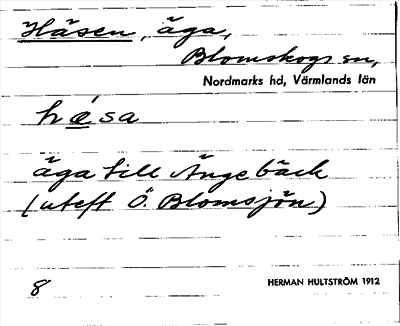 Häsen, äga,
Blomskogs sn,
Nordmarks hd, Värmlands län
hǽsa
äga till Ängebäck
(uteft Ö. Blomsjön)
8
HERMAN HULTSTRÖM 1912